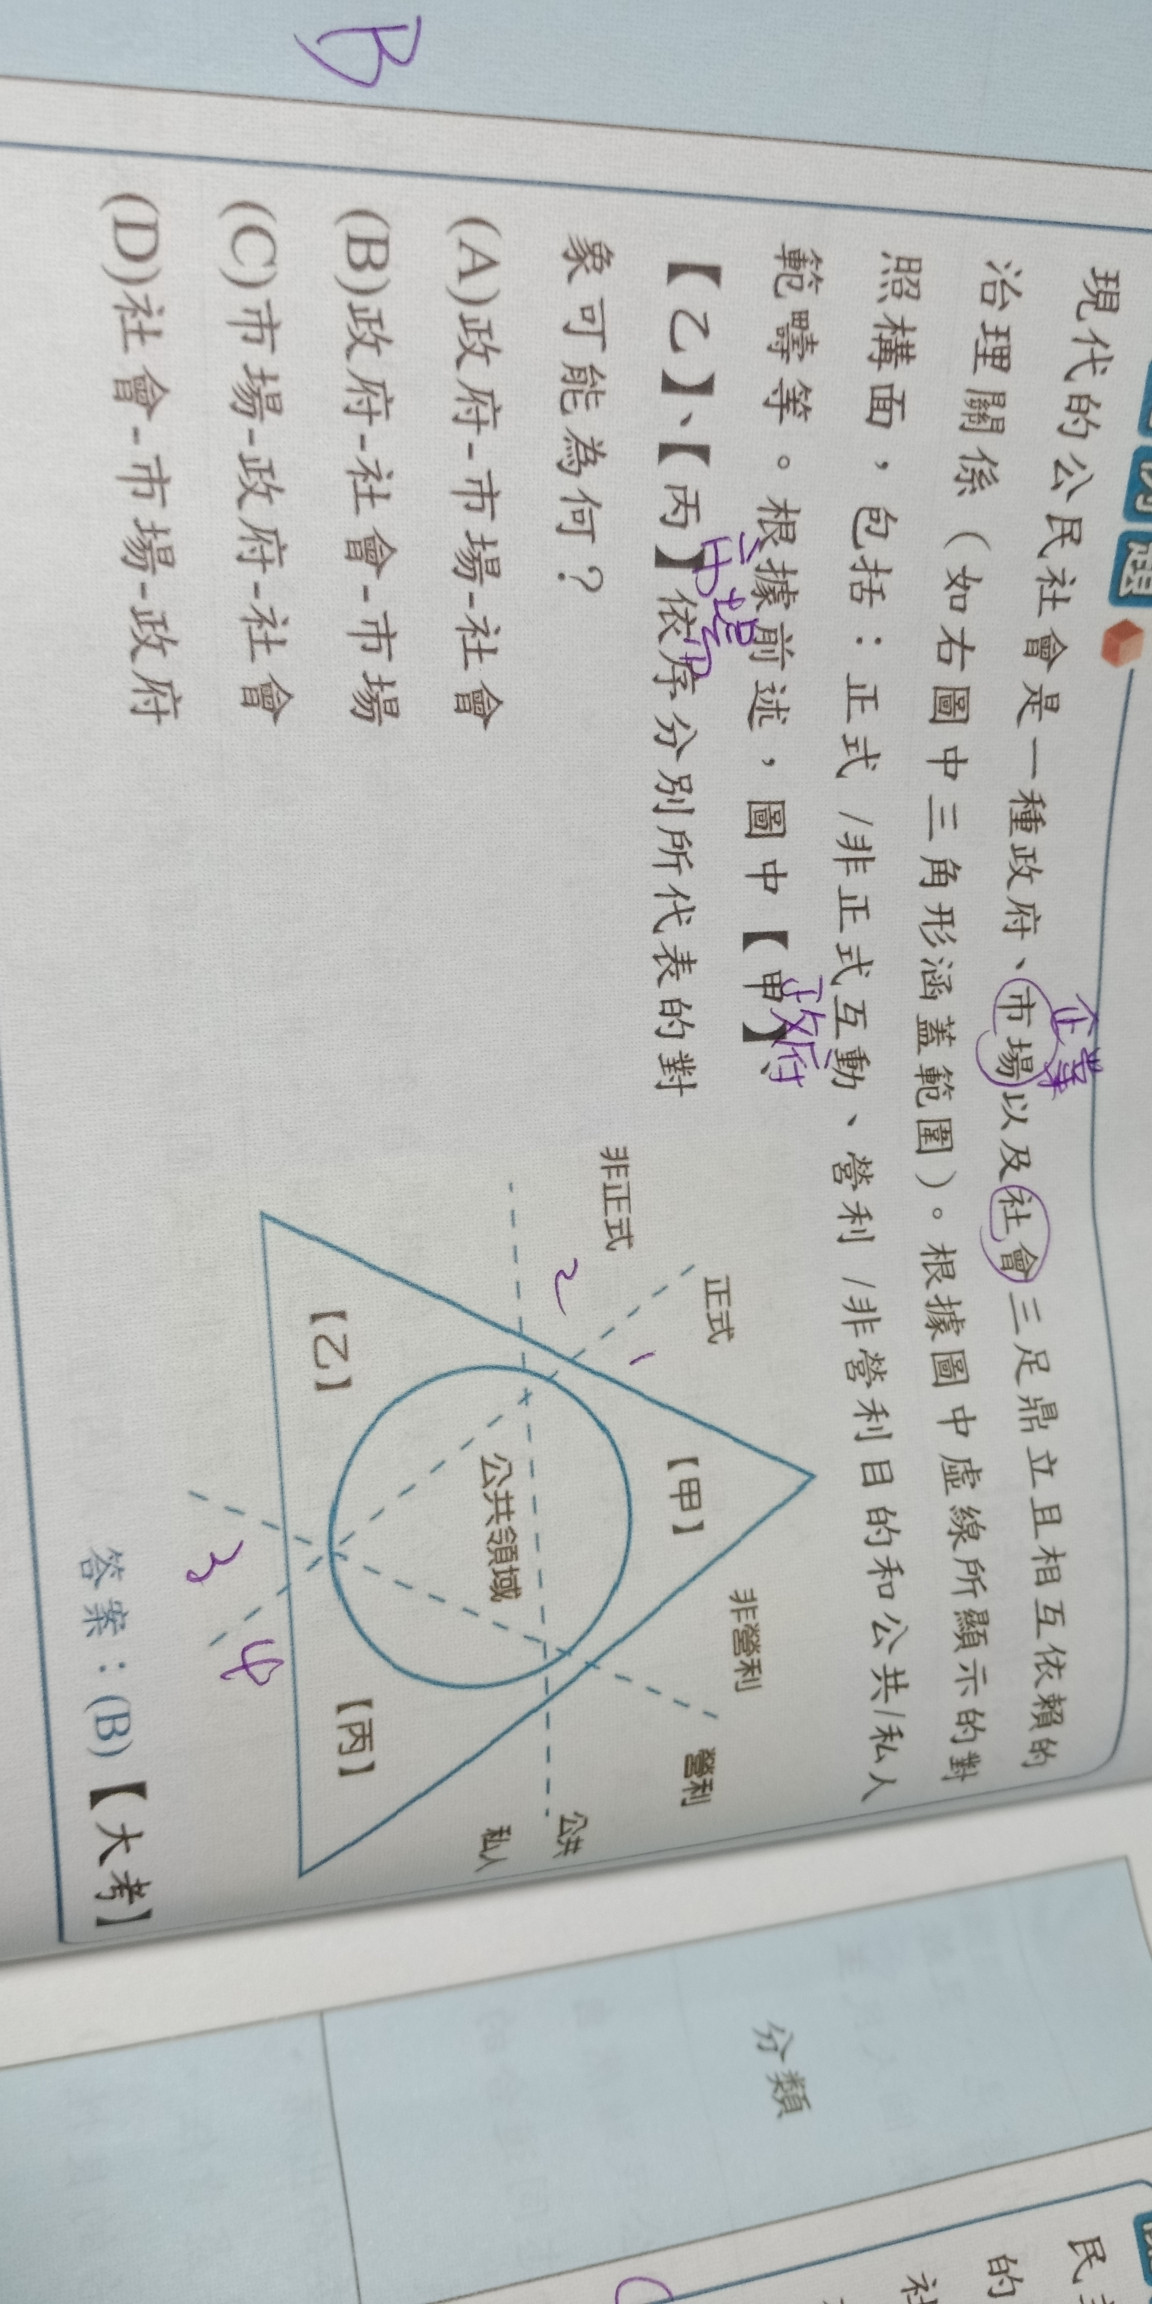 B
現代的公民社會是一種政府、市場以及社會三足鼎立且相互依賴的
企業
治理關係（如右圖中三角形涵蓋範圍）。根據圖中虛線所顯示的對
照構面，包括：正式/非正式互動、營利/非營利目的和公共/私人
範疇等。根據前述，圖中【甲】、
政府
【乙】、【丙】依序分別所代表的對
象可能為何？
(A)政府-市場-社會
(B)政府-社會-市場
(C)市場-政府-社會
(D)社會-市場-政府
正式
非正式
1
2
【甲】
非營利
營利
公共領域
公共
私人
【乙】
【丙】
3
4
答案：(B)【大考】
分類